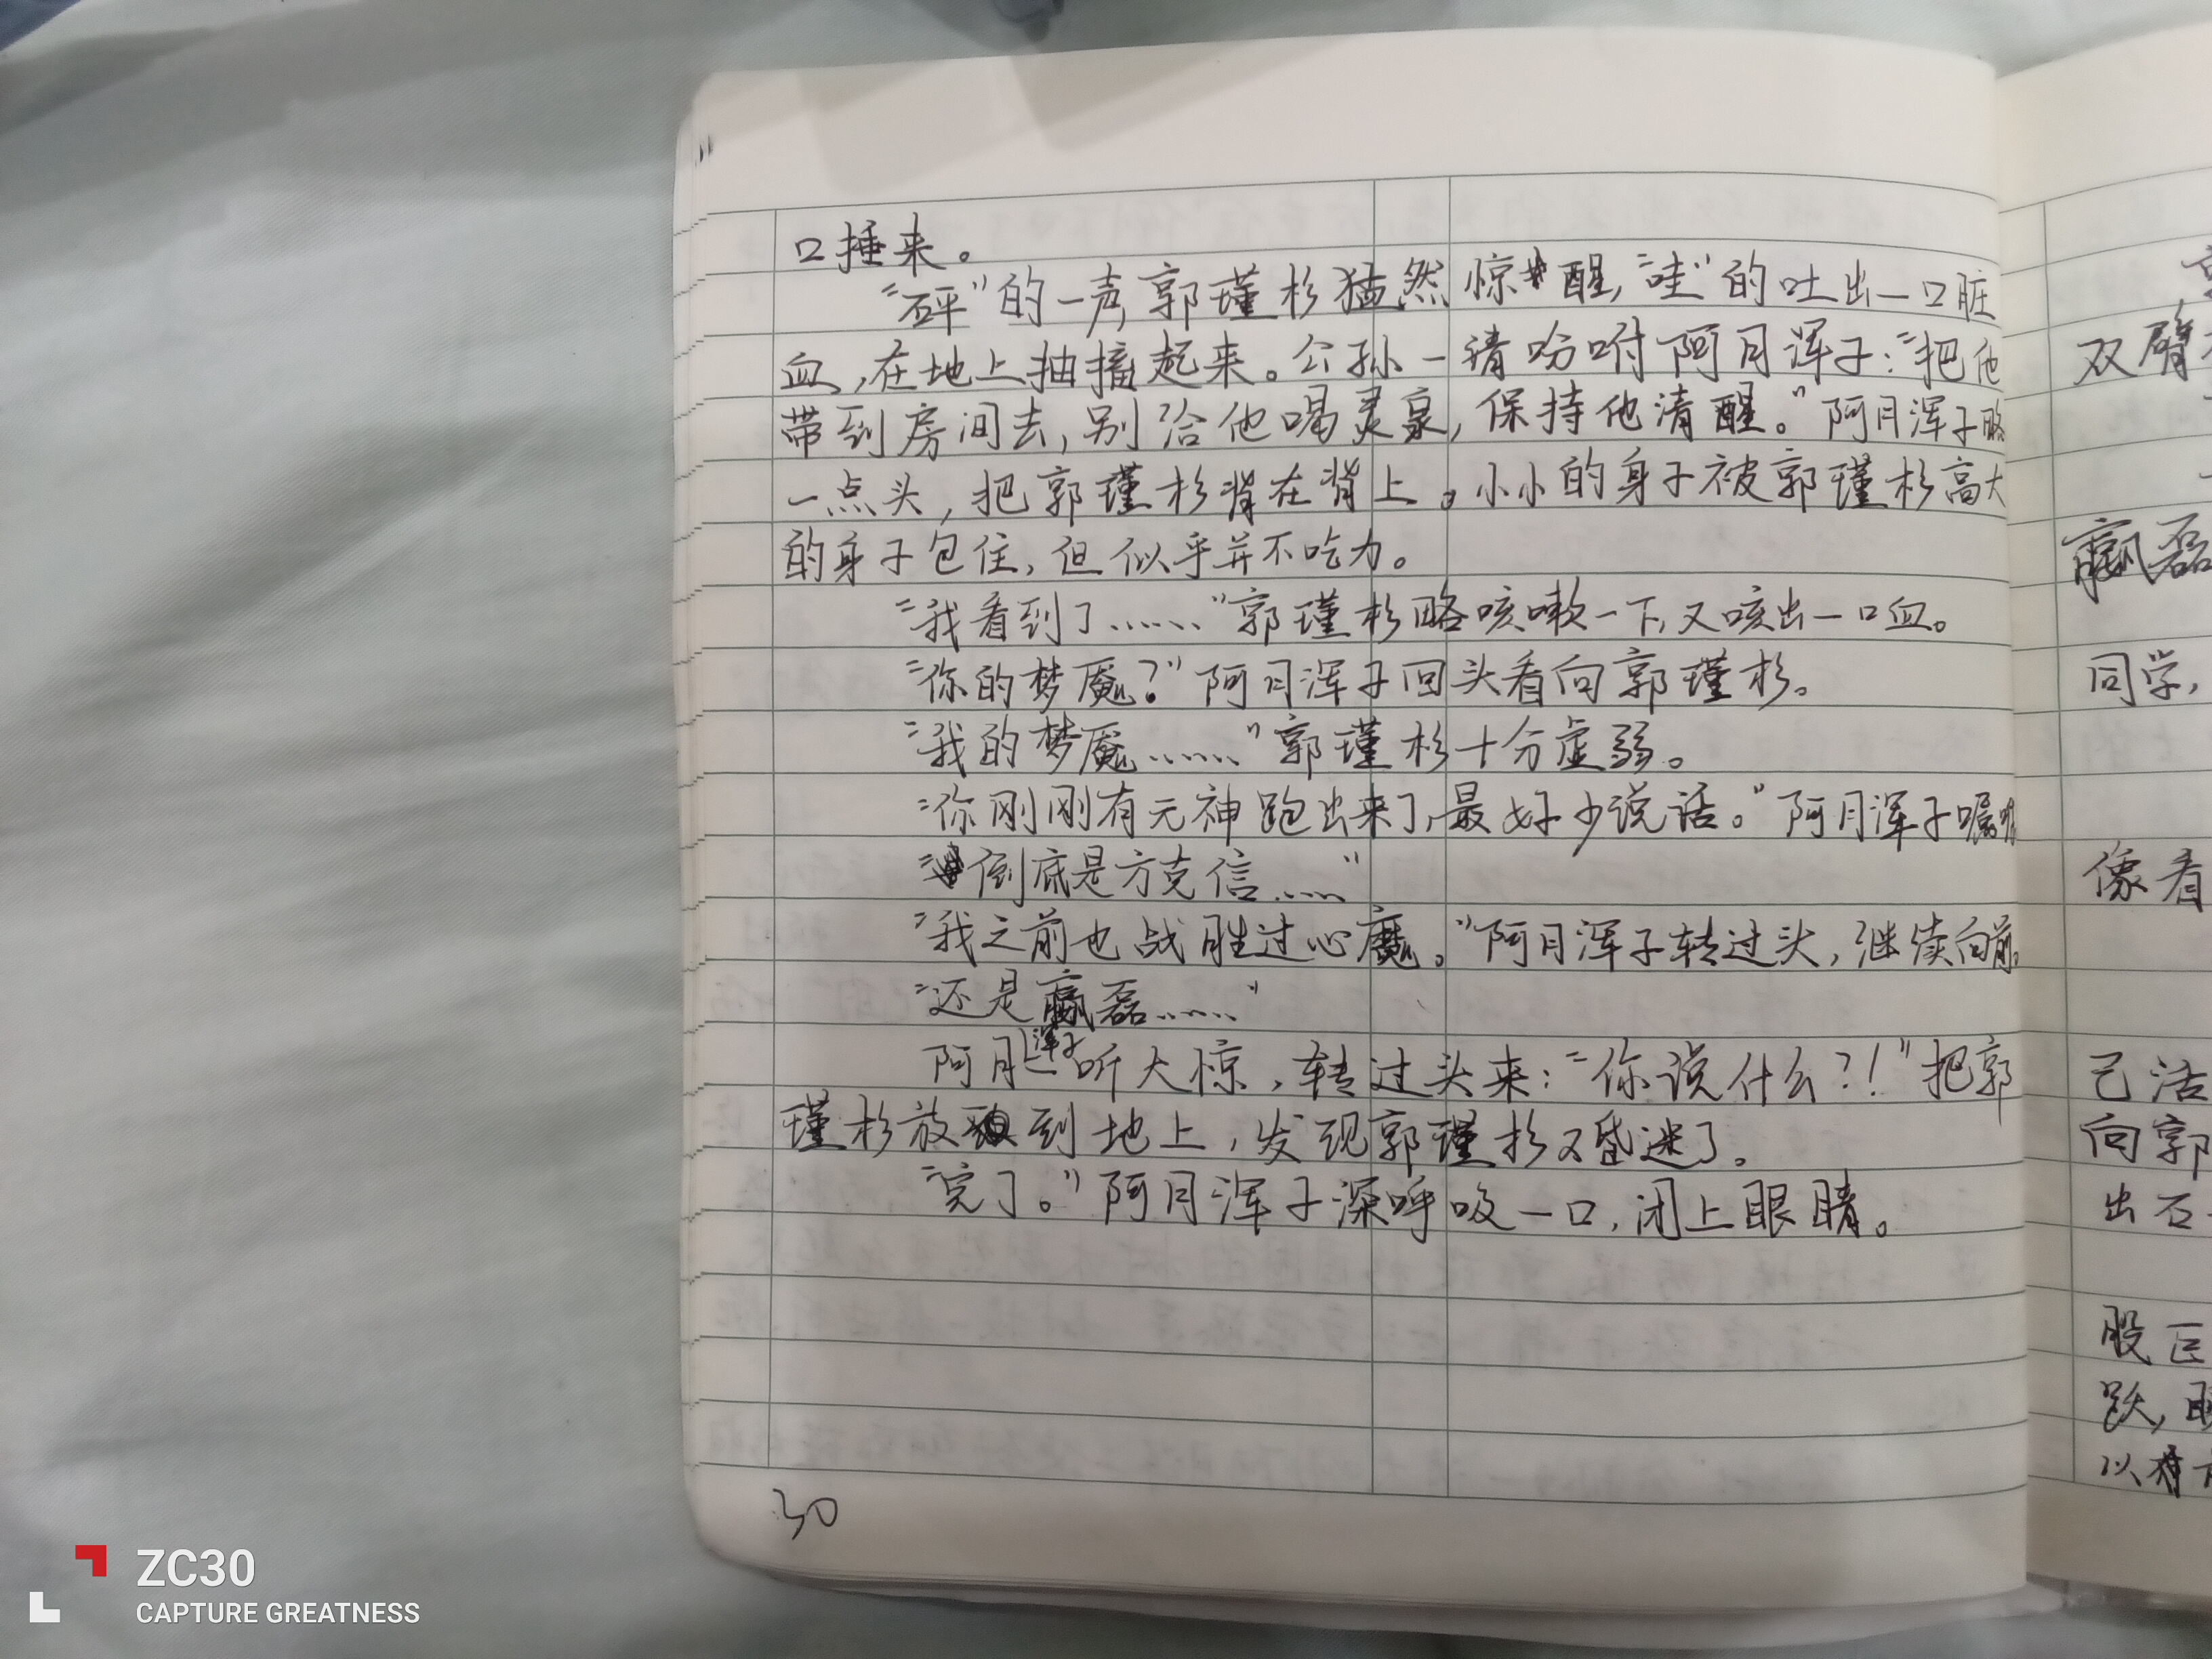 口捶来。
“砰”的一声,郭瑾杉猛然惊醒,“哇”的吐出一口脏
血,在地上抽搐起来。公孙一清吩咐阿月浑子:“把他
带到房间去,别给他喝灵泉,保持他清醒。”阿月浑子略
一点头,把郭瑾杉背在背上。小小的身子被郭瑾杉高大
的身子包住,但似乎并不吃力。
“我看到了……”郭瑾杉略咳嗽一下,又咳出一口血。
“你的梦魇?”阿月浑子回头看向郭瑾杉。
“我的梦魇……”郭瑾杉十分虚弱。
“你刚刚有元神跑出来了,最好少说话。”阿月浑子嘱咐
“倒底是方克信……”
“我之前也战胜过心魔。”阿月浑子转过头,继续向前。
“还是嬴磊……”
阿月浑子一听大惊,转过头来:“你说什么?!”把郭
瑾杉放到地上,发现郭瑾杉又昏迷了。
“完了。”阿月浑子深呼吸一口,闭上眼睛。
30
双臂
嬴磊
同学,
像看
己活
向郭
出石
股巨
跃,
以
ZC30
CAPTURE GREATNESS